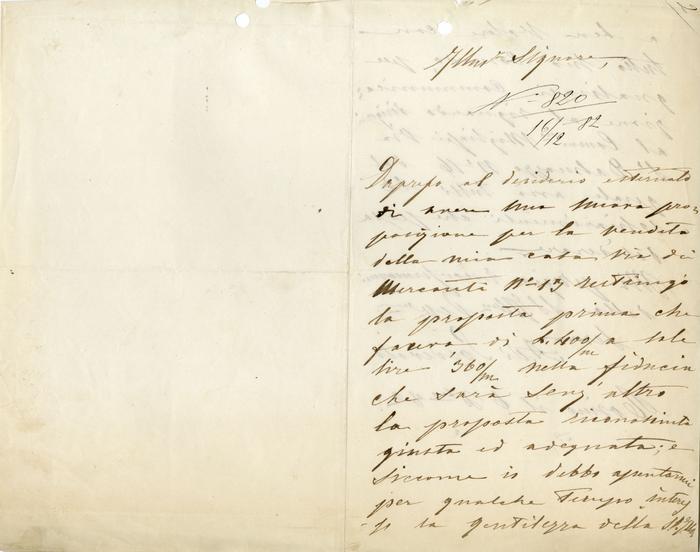 Illmo Signore,
N° 820
16/12 82
Dappresso al desiderio esternato
di avere una nuova pro-
posizione per la vendita
della mia casa Via di
Mercanti N° 13
la proposta prima che
faceva di L. 400/m a sole
lire 360/m nella fiducia
che sarà senz'altro
la proposta riconosciuta
giusta ed adeguata; e
siccome io debbo
per qualche tempo
la gentilezza della